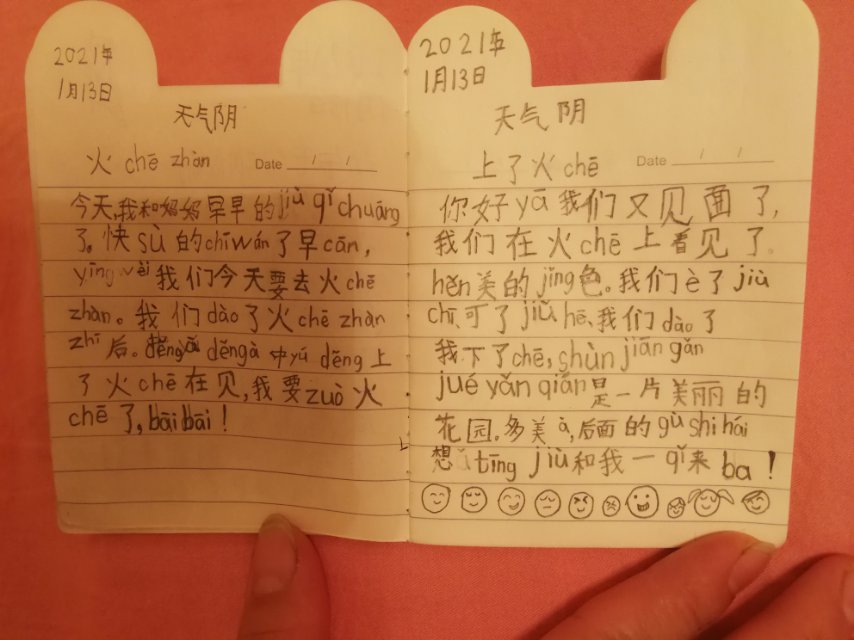 2021年
1月13日
天气阴
火 chē zhàn
Date / /
今天,我和妈妈早早的jiù qǐ chuáng
了。快 sù 的chīwán了早cān,
yīng wèi 我们今天要去火 chē
zhàn。我们 dào 了火 chē zhàn
zhī 后。děngà 中yú děng 上
了火 chē 在见,我要 zuò 火
chē 了,bāi bāi！
2021年
1月13日
天气阴
上了火 chē
Date / /
你好 yā 我们又见面了,
我们在火 chē 上看见了
hěn美的 jǐng 色。我们 è 了 jiù
chī、可了 jiù hē、我们 dào 了
我下了chē, shùn jiān gǎn
jué yǎn qián 是一片美丽的
花园。多美 à,后面的 gù shi hái
想 tīng jiù 和我一 qǐ 来 ba！